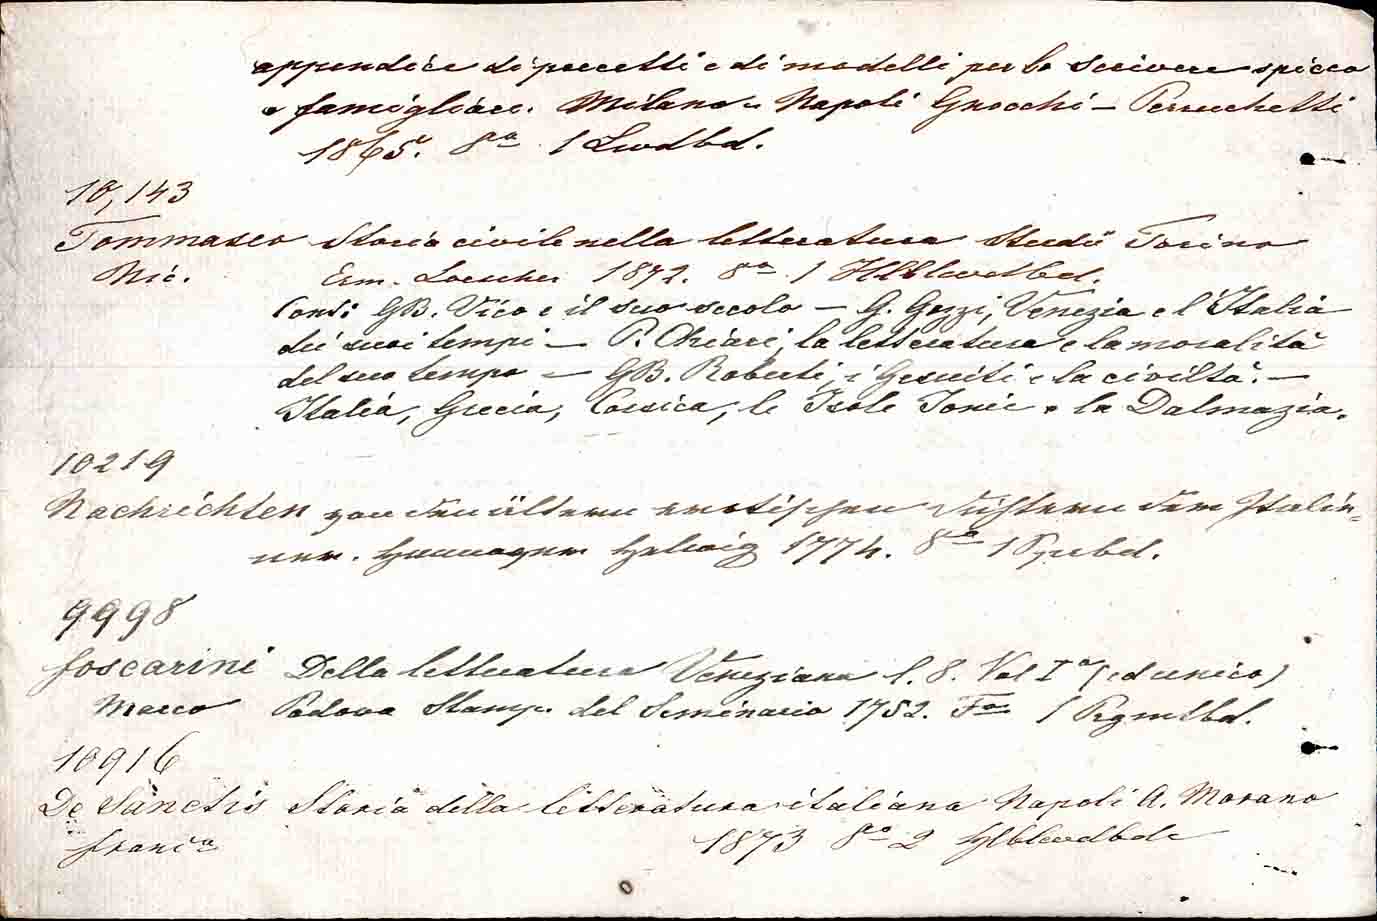 appendice di precetti e di modelli per lo scrivere
e famigliare. Milano e Napoli Gnocchi – Perruchetti
1865. 8° 1 Lwdbd.
10,143
Tommaseo Storia civile nella letteratura Studii Torino
Nic. Erm. Loescher 1872. 8° 1 Hlblwdbd.
Cont: GB. Vico e il suo secolo – G. Gozzi, Venezia e l'Italia
de' suoi tempi – P. Chiari, la letteratura e la moralità
del suo tempo – GB. Roberti, i Gesuiti e la civiltà. –
Italia, Grecia, Corsica, le Isole Jonie e la Dalmazia.
10219
Nachrichten von den ältern erotischen Dichtern der Italie=
ner. Hannover Helwig 1774. 8° 1 Ppebd.
9998
Foscarini Della letteratura Veneziana l. 8. Vol I° (ed unico)
Marco Padova Stamp. del Seminario 1752. F° 1 Prgmtbd.
10916
De Sanctis Storia della letteratura italiana Napoli A. Morano
Franc° 1873 8° 2 Hlblwdbde